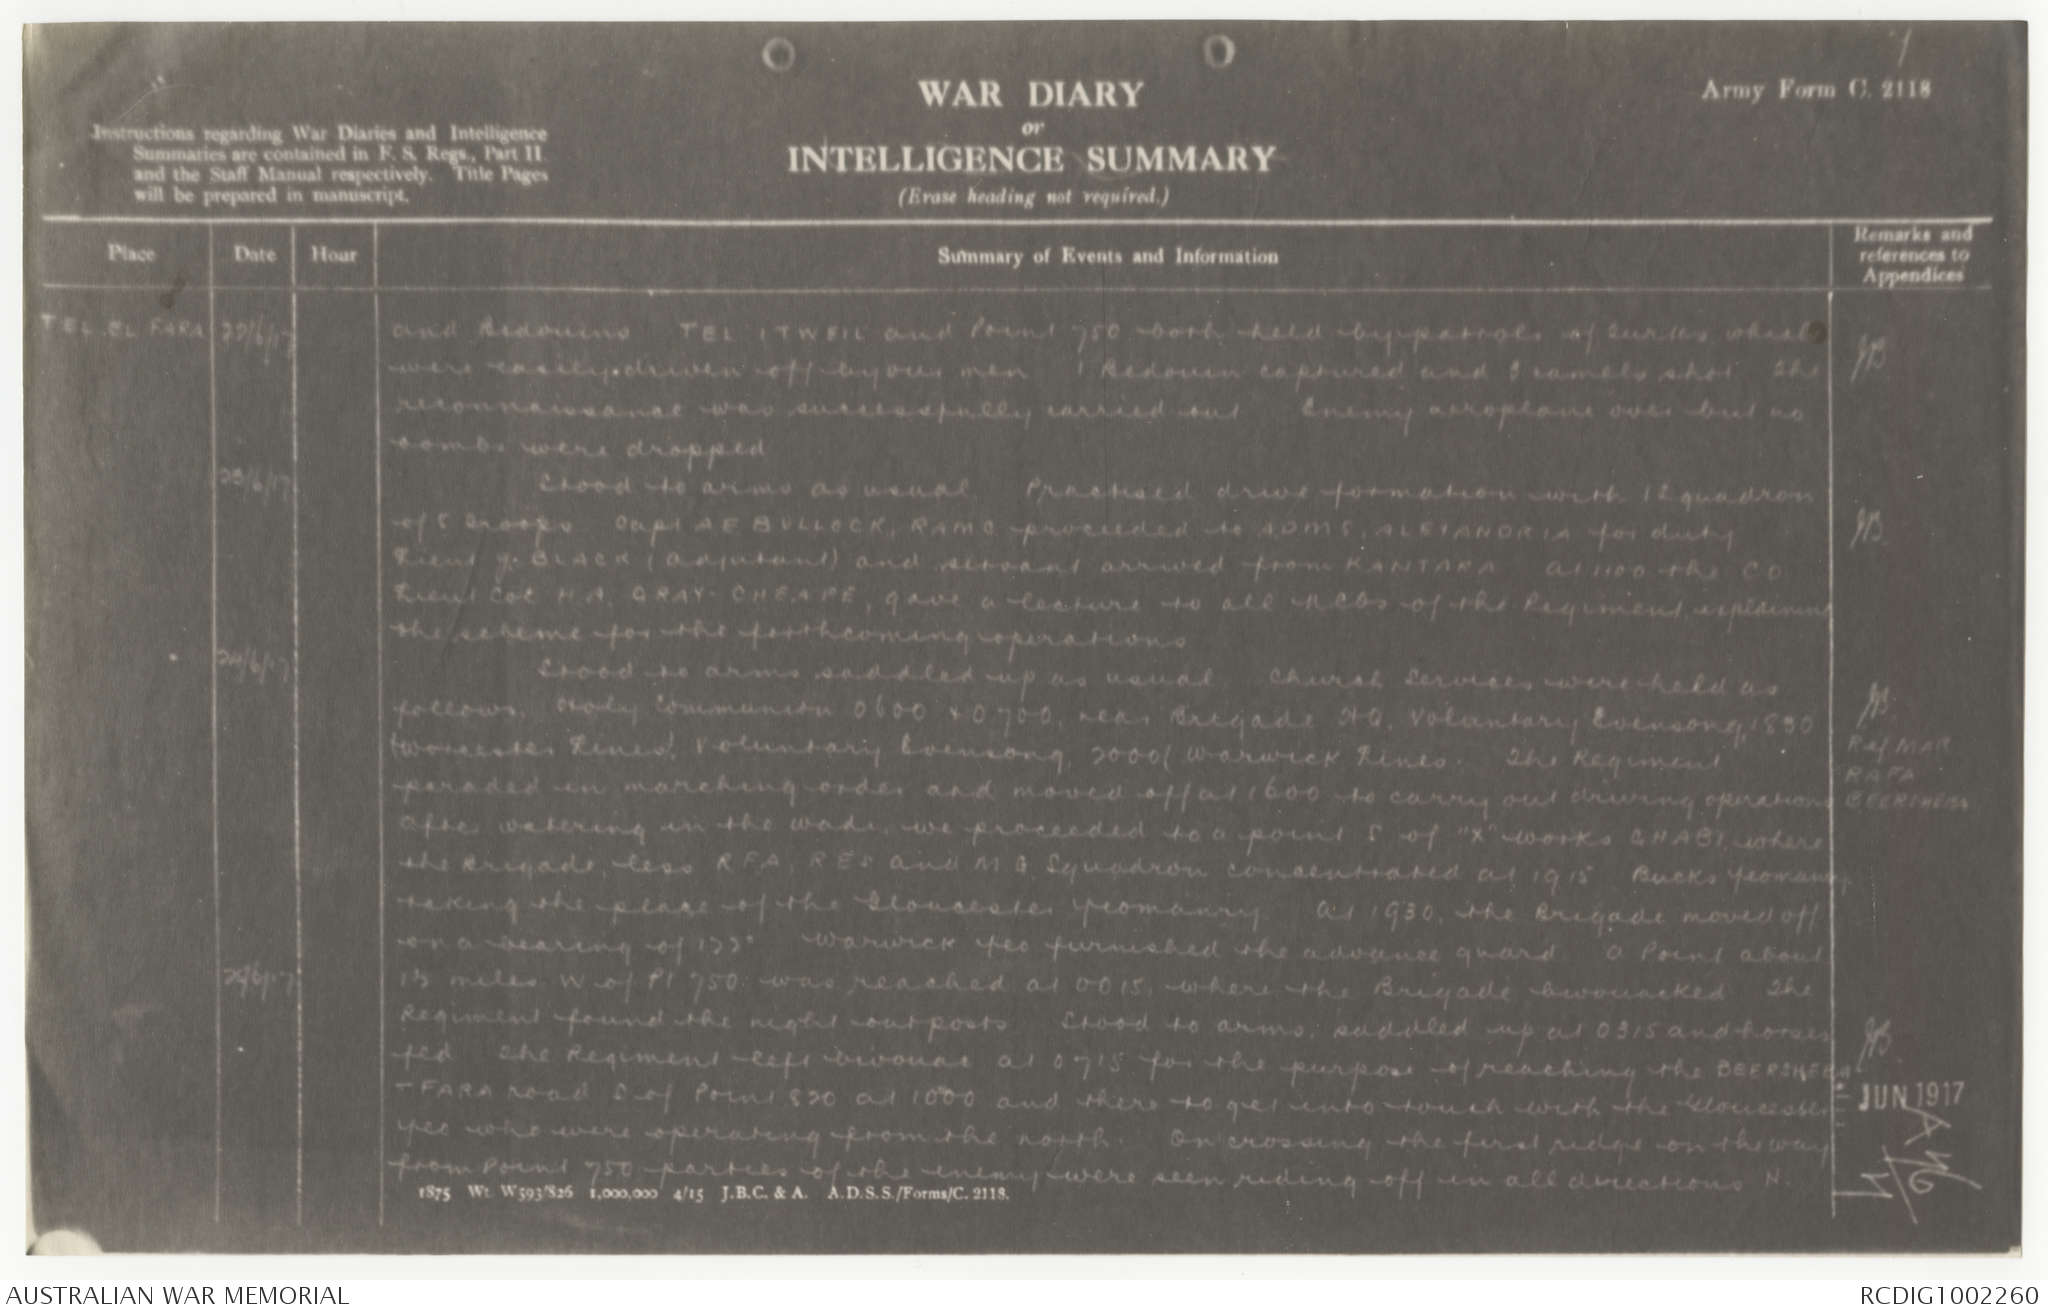 WAR DIARY
or
INTELLIGENCE SUMMARY
(Erase heading not required.)
Army Form C. 2118
Instructions regarding War Diaries and Intelligence
Summaries are contained in F. S. Regs., Part II
and the Staff Manual respectively. Title Pages
will be prepared in manuscript.
Place Date Hour Summary of Events and Information Remarks and references to Appendices
TEL EL FARA 22/6/17 and Bedouins TEL ITWEIL and Point 750 both held by patrols of Turks which JB
were easily driven off by our men 1 Bedouin captured and camels shot The
reconnaissance was successfully carried out Enemy aeroplane over but no
bombs were dropped
23/6/17 Stood to arms as usual Practised drive formation with 1 Squadron
of 5 troops Capt A E BULLOCK, RAMC proceeded to ADMS, ALEXANDRIA for duty JB
Lieut J. BLACK (adjutant) and servant arrived from KANTARA at 1100 the CO
Lieut Col H.A. GRAY-CHEAPE, gave a lecture to all NCOs of the Regiment explaining
the scheme for the forthcoming operations
24/6/17 Stood to arms saddled up as usual Church Services were held as
follows. Holy Communion 0600 & 0700, near Brigade HQ, Voluntary Evensong, 1830 JB
(Worcester Lines). Voluntary Evensong, 2000 (Warwick Lines. The Regiment Ref MAP
paraded in marching order and moved off at 1600 to carry out driving operations RAFA
After watering in the wadi, we proceeded to a point S of "X" works GHABI, where BEERSHEBA
the Brigade, less RFA, REs and M G Squadron concentrated at 1915 Bucks Yeomanry
taking the place of the Gloucester Yeomanry. At 1930, the Brigade moved off
on a bearing of 122° Warwick Yeo furnished the advance guard. A Point about
25/6/17 1½ miles W of Pt 750 was reached at 0015, where the Brigade bivouacked The
Regiment found the night outposts Stood to arms, saddled up at 0315 and horses
fed The Regiment left bivouac at 0715 for the purpose of reaching the BEERSHEBA JB
-FARA road S of Point 820 at 1000 and there to get into touch with the Gloucester
Yeo who were operating from the north. On crossing the first ridge on the way
from Point 750 parties of the enemy were seen riding off in all directions N.
JUN 1917
1875 Wt. W593/826 1,000,000 4/15 J.B.C. & A. A.D.S.S./Forms/C. 2118.
AUSTRALIAN WAR MEMORIAL
RCDIG1002260